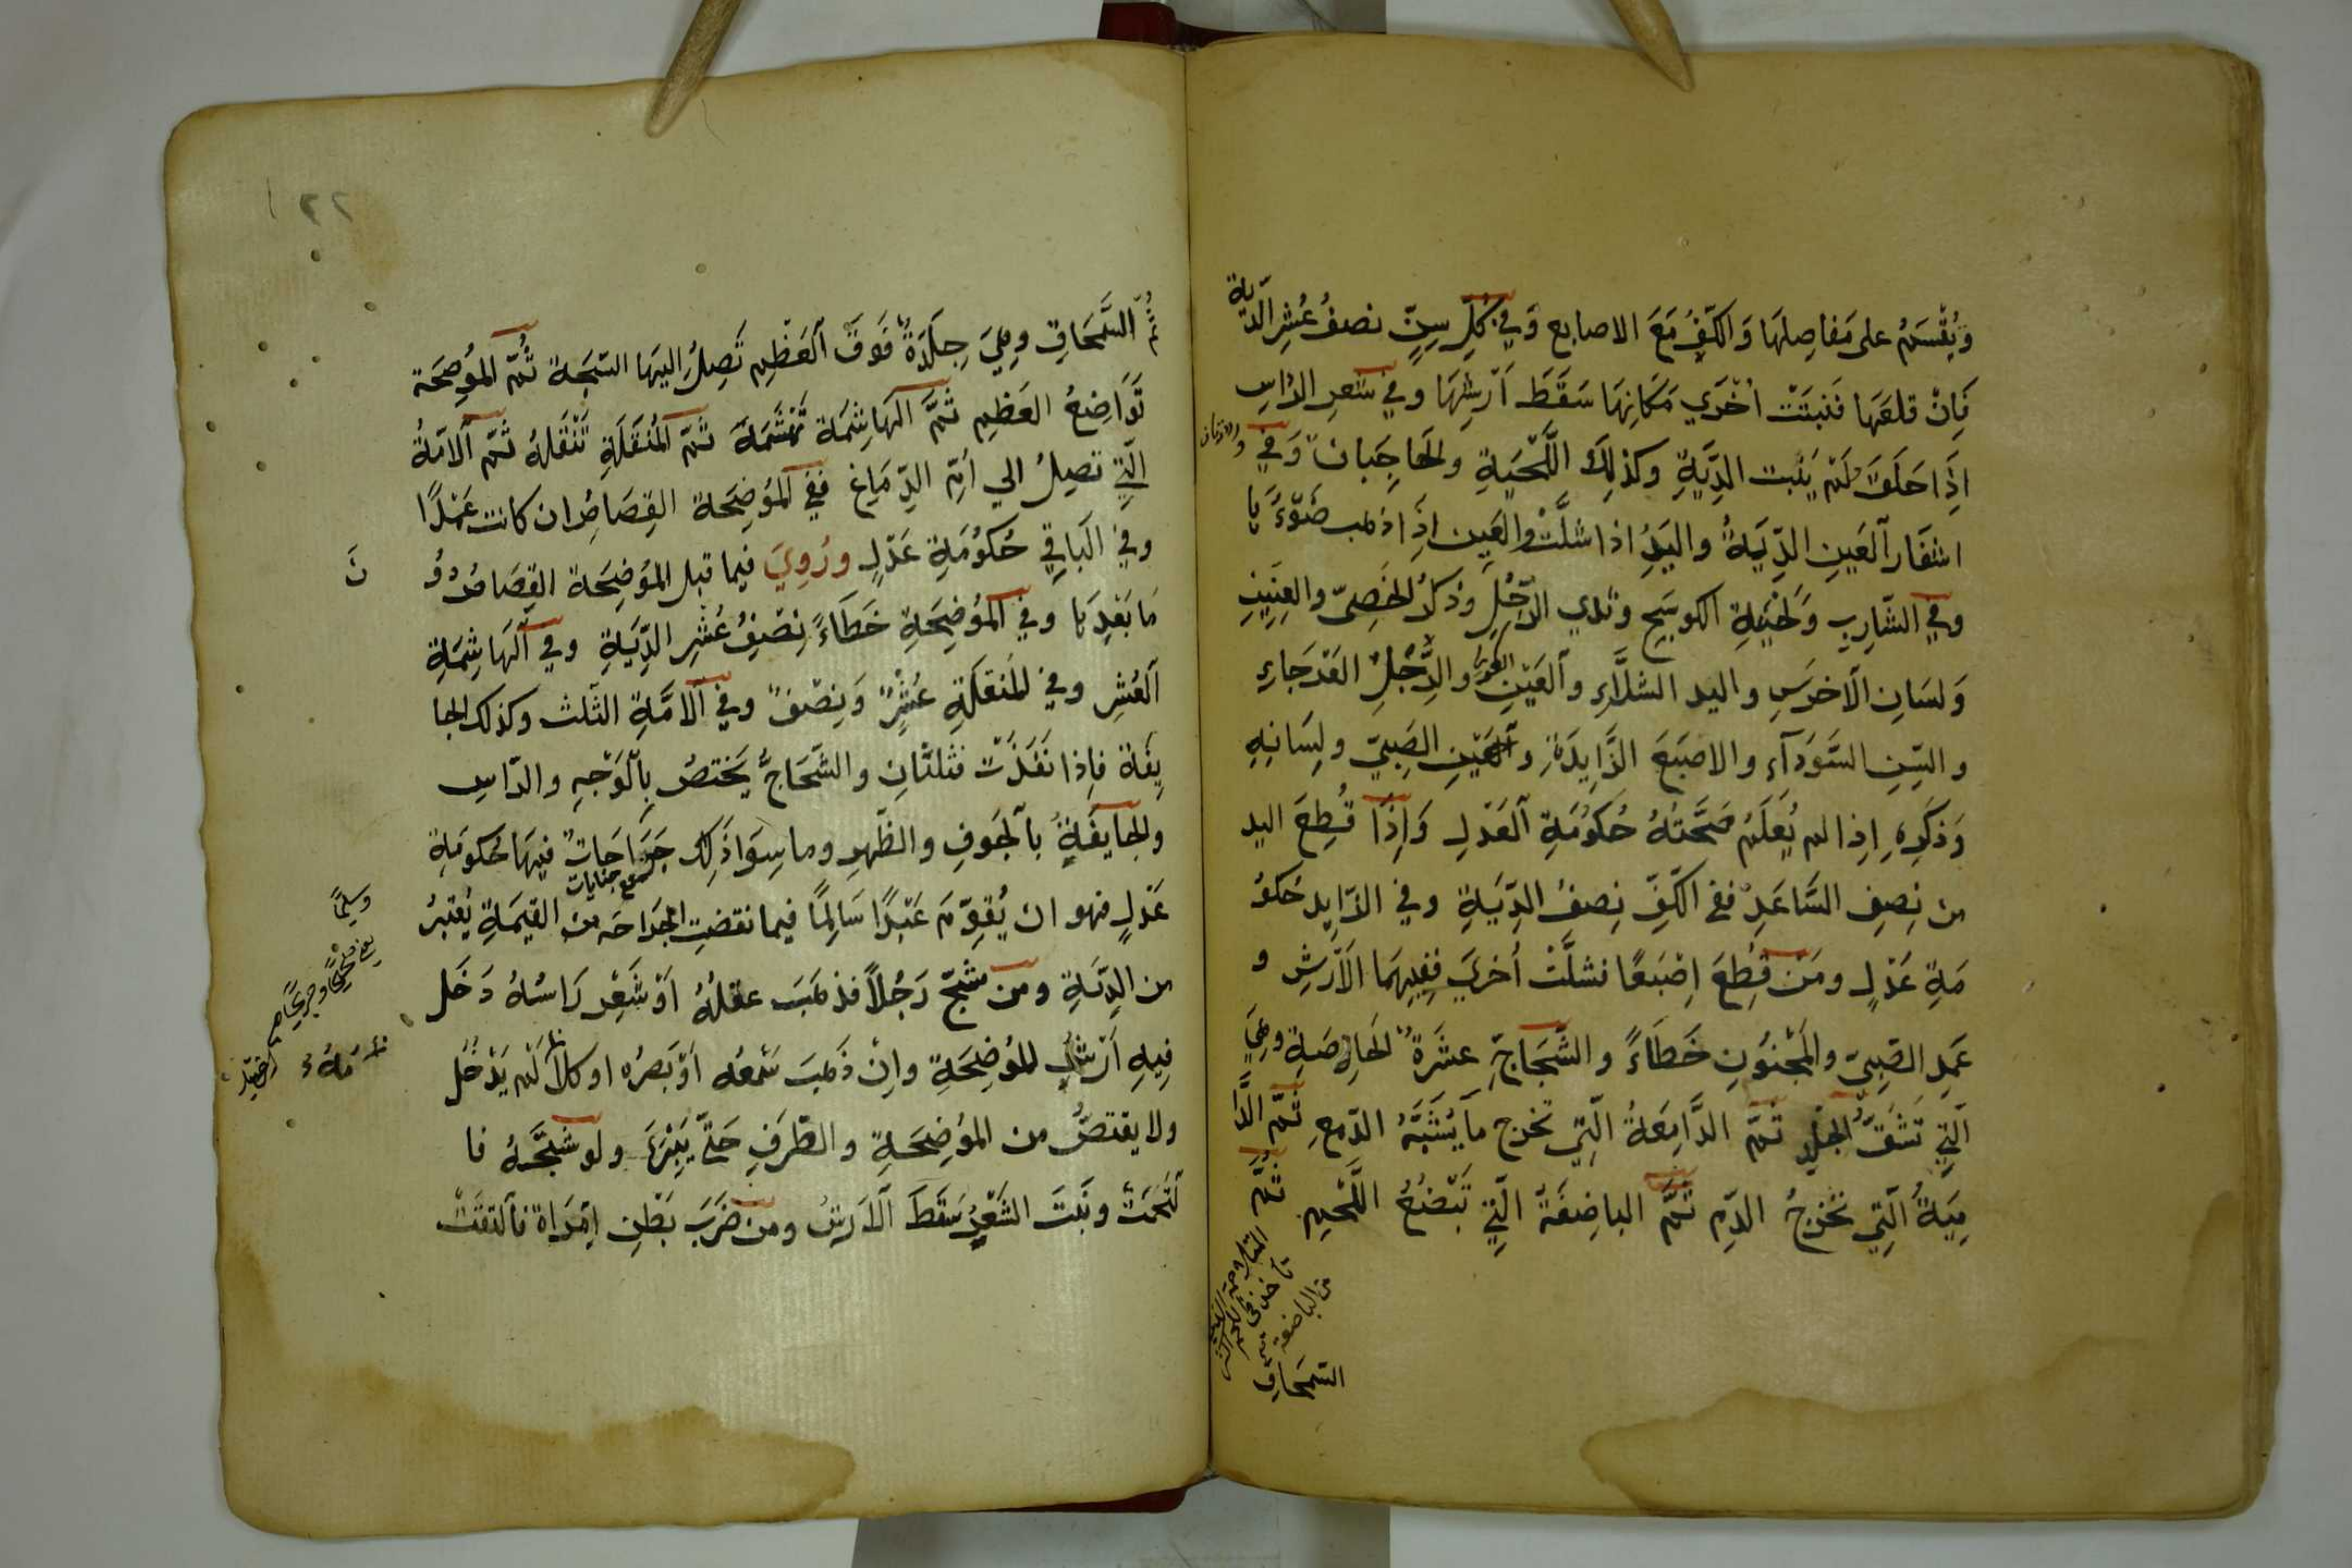 وَيُقْسَمُ على مَفاصِلهَا وَالكَفِّ مَعَ الاصابع وَفي كُلِّ سِنٍّ نصفُ عُشِرِ الدِّية
فَاِنْ قلعَها فَنبتَتْ اُخْرَي مَكَانِهَا سَقَطَ اَرْشهَا وفي شَعرِ الرّاسِ
اِذَا حَلَقَ لَمْ يَنْبت الدِّيَةِ وكذلِكَ اللَّحْيَةِ ولحَاجِبَان وَفي
والاذنان
اشفَار اَلعَينِ الدِّيَةُ واليَدُ اذا شلَّتْ والعَين اِذَا ذهب ضَوْءُهَا
وفي الشّارِبِ وَلحْيَةِ الكوسَجِ وثدي الرَّجُلِ وذكَرُ الخَصِيّ والعِنِينِ
وَلسَانِ الآخرَسِ واليد الشلَّاءِ وآلعَيْنِ العَورَاءِ والرِّجْلِ العَرْجَاءِ
والسِّنِ السَّوَدَآءِ والاصبَعَ الزَّايِدَةِ وآلعَيْنِ الصَبِيّ ولِسَانِهِ
وَذكَرِهِ اِذا لم يُعْلَمْ صَحَّتهُ حُكُوُمَةِ اَلعَدْلِ وَاِذَا قُطِعَ اليد
من نِصفِ السَّاعَدِ ففي الكَفِّ نِصفُ الدِّيَةِ وفي الزّايِد حُكوُ
مَةِ عَدْلٍ ومَنْ قُطِعَ اِصْبَعًا فشلَّتْ اُخرَيَ فَفِيهِمَا الَاَرْشِ و
عَمَدِ الصَّبِيّ والمَجْنوُنِ خَطَاءً والشَّجَاجِّ عشَرَةٌ الحَارِصَةِ وهِيَ
اَلتِي تَشَقّ الجْلِد ثُمَّ الدَّامِعَةُ الّتِي تخرج مَا يُشَبَّهُ الدّمعِ ثُمَّ الدَّا
مِيَةُ الَّتِي تُخْرِجُ الدَّمِ ثُمَّ الباضِعَةُ الّتِي تَبْضَعُ اللَّحْمِ ثُمَّ
المتلاحمة
من الباضعة
السّمحاق
١٢٢
ثُمَّ السَّمَحَاقِ وهِيَ جِلَدَةٌ فَوَقَ اَلعَظْمِ تَصِلُ اليهَا الشجَة ثُمَّ المُوَضِحَة
تَوَاضِعُ العَظِمِ ثُمَّ اَلهَاشِمَة تَهْشَمَهُ ثُمَّ اَلمُنَقَلَةِ تَنْقَلهُ ثُمَّ اَلآمَةُ
الّتِي تصِلُ الي اُمِّ الدِّمَاغِ فَفي اَلمُوَضِحَة القِصَاصُ ان كانت عَمْدًا
وفي الَباقِي حُكُوُمَةِ عَدْلٍ ورُوِيَ فيما قبل المُوَضِحَة القِصَاصُ دُوُ
نَ
مَا بَعْدِهَا وفي اَلمُوَضِحَةِ خَطَاءً نِصْفُ عُشْرِ الدِّيَةِ وفي اَلهَاشِمَةِ
اَلعُشِر وفي لمُنقَلَةِ عُشْرٌ وَنِصْفٌ وفي اَلآمَّةِ الثّلث وكذلك الجا
يِفَة فاِذا نَفَذَتْ فثلثَانِ والشَّجَاجُّ يَختصُ بِالَوَجْهِ والرّاسِ
والجايفَةِ بالجَوفِ والظَّهرِ وما سِوَا ذَلِك جَرَاحَاتٌ فيهَا حُكوُمَةِ
جمع جنايات
عَدْلٍ فهو ان يُقوِّمَ عَبْدًا سَالِمًا فيما نقضتِ الجَرَاحَه من القيمَةِ يُعْتبَرُ
وسليمًا
من الدِّيَةِ ومن شَجّ رَجُلاً فذهَبَ عقلُهُ اَوْ شَعْرِ رَاسُهُ دَخَل
فِيهِ اَرْشُ المُوَضِحَةِ واِنْ ذَهبَ سَمْعُه اَوْ بَصرُه او كلاَمُهُ لَمْ يَدْخُل
ولا يقتصُّ من المُوضِحَةِ والطَّرَفِ حَتّي يَبْرَاءَ ولَو شَجَّهُ فا
لتحَمَتْ ونَبَتَ الشَعْرُ سَقَطَ اَلاَرْشُ ومن ضَرَبَ بَطْنِ اِمْرَاة فاَلقَتْ